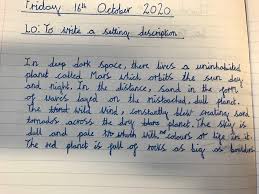 Friday 16th October 2020
LO: To write a setting description
In deep dark space, there lives a uninhabited
planet called Mars which orbits the sun day
and night. In the distance, sand in the form
of waves layed on the mistached, dull planet.
The wind, constantly blest creating sand
tornados across the dry planet. The sky is
dull and pale with no colours or life in it
The red planet is full of rocks as big as boulders